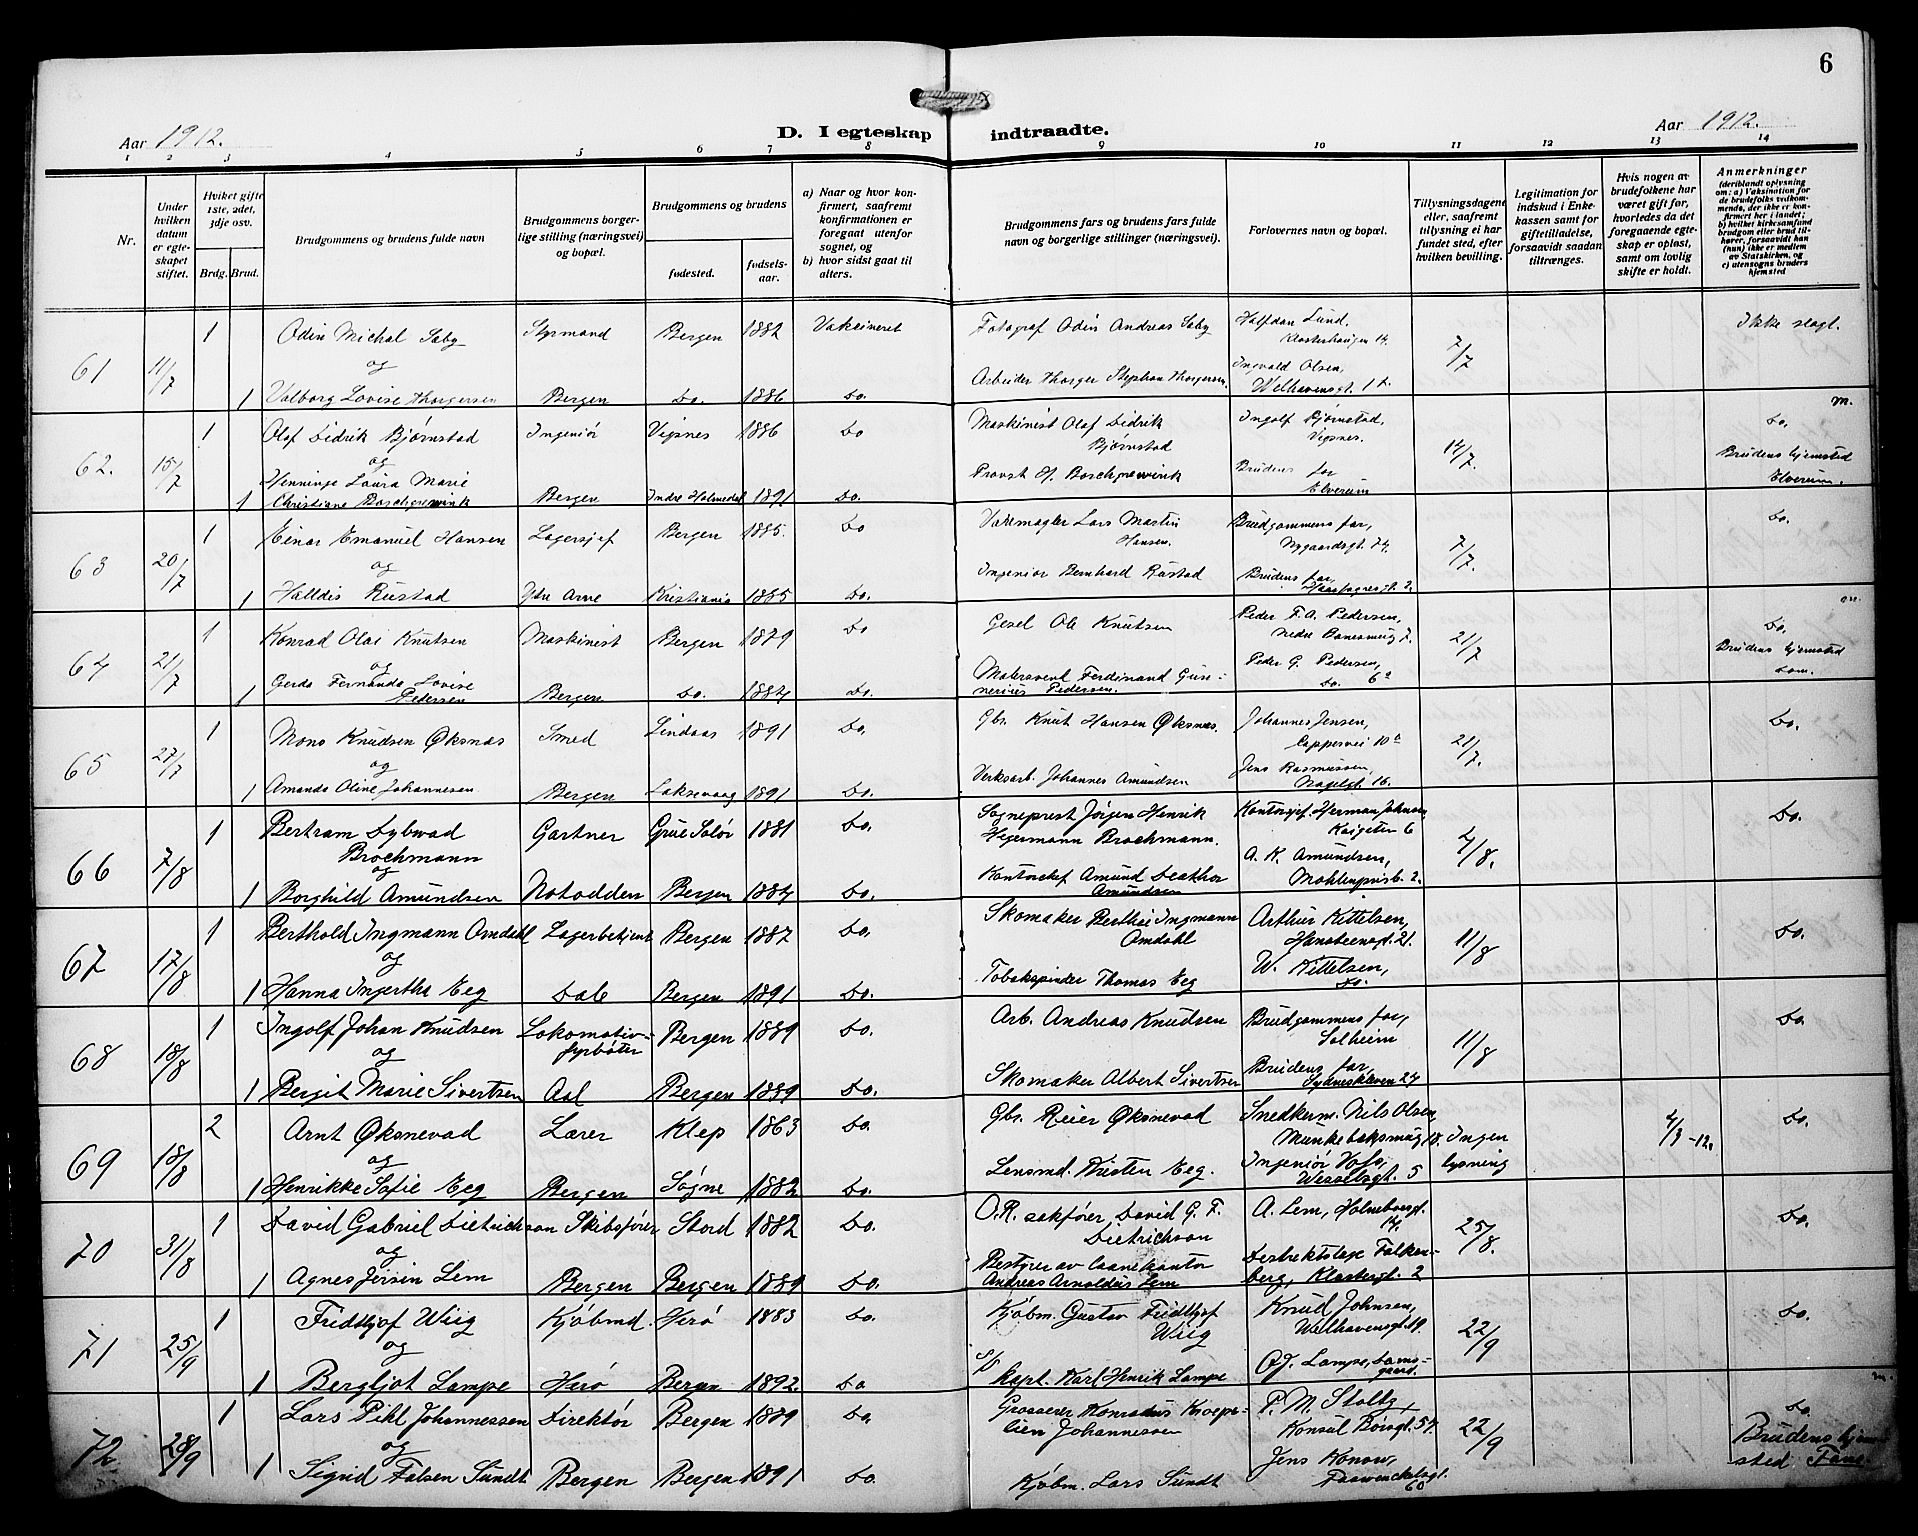 6
Aar 1912.
D. I egteskap indtraadte.
Aar 1912.
1 2 3 4 5 6 7 8 9 10 11 12 13 14
Nr.
Under hvilken datum er egteskapet stiftet.
Hviket gifte 1ste, 2det, 3dje osv.
Brdg. Brud.
Brudgommens og brudens fulde navn
Brudgommens borgerlige stilling (næringsvei) og bopæl.
Brudgommens og brudens
fødested.
fødselsaar.
a) Naar og hvor konfirmert, saafremt konfirmationen er foregaat utenfor sognet, og
b) hvor sidst gaat til alters.
Brudgommens fars og brudens fars fulde navn og borgerlige stillinger (næringsvei).
Forlovernes navn og bopæl.
Tillysningsdagene eller, saafremt tillysning ei har fundet sted, efter hvilken bevilling.
Legitimation for indskud i Enkekassen samt for giftetilladelse, forsaavidt saadan tiltrænges.
Hvis nogen av brudefolkene har været gift før, hvorledes da det foregaaende egteskap er opløst, samt om lovlig skifte er holdt.
Anmerkninger (deriblandt oplysning om: a) Vaksination for de brudefolks vedkommende, der ikke er konfirmert her i landet; b) hvilket kirkesamfund brudgom eller brud tilhører, forsaavidt han (hun) ikke er medlem av Statskirken, og c) utensogns bruders hjemsted
61 11/7 1 Odin Michal Saby Styrmand Bergen 1882 Vaksineret Fotograf Odin Andreas Saby Halfdan Lund, Klosterhaugen 14. 7/7 Ikke slagt.
og
1 Valborg Lovise Thorgersen Bergen Do. 1886 Do. Arbeider Thorger Stephan Thorgersen. Ingvald Olsen, Welhavensgt. 12.
62. 15/7 1 Olaf Didrik Bjørnstad Ingeniör Vigsnes 1886 Do Maskinist Olaf Didrik Bjørnstad Ingolf Bjørnstad, Vigsnes. 14/7. m. Do.
og
1 Henninge Laura Marie Christiane Borchgrewink Bergen Indre Holmedal 1891. Do. Provst H. Borchgrewink Brudens far Elverum Brudens hjemsted Elverum.
63 20/7 1 Einar Emanuel Hansen Lagersjef Bergen 1885. Do Varemægler Lars Martin Hansen. Brudgommens far, Nygaardsgt. 74. 7/7. Do.
og
1 Halldis Rustad Ytre Arne Kristiania 1885 Do. Ingeniör Bernhard Rustad Brudens far, Haarfagresgt. 2.
64 21/7 1 Konrad Olai Knutsen Maskinist Bergen 1879 Do Gesel Ole Knutsen Peder F. A. Pedersen, 21/7 m. Do.
og
1 Gerda Fernanda Lovise Pedersen Bergen Do. 1884 Do. Malersvend Ferdinand Gunnerius Pedersen. Peder G. Pedersen, Do. Brudens hjemsted
65 27/7 1 Mons Knudsen Øksnæs Smed Lindaas 1891 Do. Gbr. Knut Hansen Øksnæs. Johannes Jensen, 21/7. Do.
og
1 Amanda Oline Johannesen Bergen Laksevaag 1891 Do. Verksarb. Johannes Amundsen Jens Rasmussen, Nagelgt. 16.
66 7/8 1 Bertram Dybwad Brochmann Gartner Grue Solör 1881 Do. Sogneprest Jörgen Henrik Hegermann Brochmann. Kontorsjef. Herman Johnsen Kaigaten 6 4/8. Do.
og
1 Borghild Amundsen Notodden Bergen 1884 Do. Kontorchef Amund Amundsen A. K. Amundsen, Möhlenprisb. 2.
67 17/8 1 Berthold Ingmann Omdahl Lagerbetjent Bergen 1887 Do. Skomaker Ingmann Omdahl Arthur Kittelsen, Hansteensgt. 21. 11/8 Do.
og
1 Hanna Ingertha Eeg Dale Bergen 1891 Do. Tobakspinder Thomas Eeg W. Kittelsen, Do.
68 18/8 1 Ingolf Johan Knudsen Lokomotivfyrbøter Bergen 1889 Do. Arb. Andreas Knudsen Brudgommens far, Solheim 11/8 Do.
og
1 Bergit Marie Sivertsen Aal Bergen 1889 Do. Skomaker Albert Sivertsen Brudens far, Sydneskleven 27
69 18/8 2 Arnt Øksnevad Lærer Klep 1863 Do. Gbr. Reier Øksnevad Snedkerm. Nils Olsen, Munkebæksmug 18. Ingen lysning 4/3-12. Do.
og
1 Henrikke Sofie Eeg Bergen Søgne 1882 Do. Lensmd. Kristen Eeg. Ingeniör Wesselsgt. 5
70 31/8 1 David Gabriel Dietrichson Skibsförer Stord 1882 Do. O.R. sakfører David G. F. Dietrichson A. Lem, Holmebergt. 14. 25/8. Do.
og
1 Agnes Jersin Lem Bergen Bergen 1889 Do. Bestyrer av Laanekontor Andreas Arnoldus Lem Destriktslæge Falkenberg, Klostergt. 2
71 25/9 1 Fridthjof Wiig Kjøbmd. Herö 1883 Do. Kjøbm. Gustav Fridthjof Wiig Knud Johnsen, Welhavensgt. 19. 22/9 Do.
og
1 Bergljot Lampe Herö Bergen 1892. Do s/s kapt. Karl Henrik Lampe O.J. Lampe, Damsgaard.
72 28/9 1 Lars Pihl Johannessen Direktör Bergen 1889 Do. Grosserer Konradus Johannessen P. M. Stoltz, Konsul Börsgt. 57. 22/9 m. Do.
og
1 Sigrid Falsen Sundt Bergen Bergen 1891 Do. Kjøbm. Lars Sundt Jens Konow, 60 Brudens hjemsted Fane